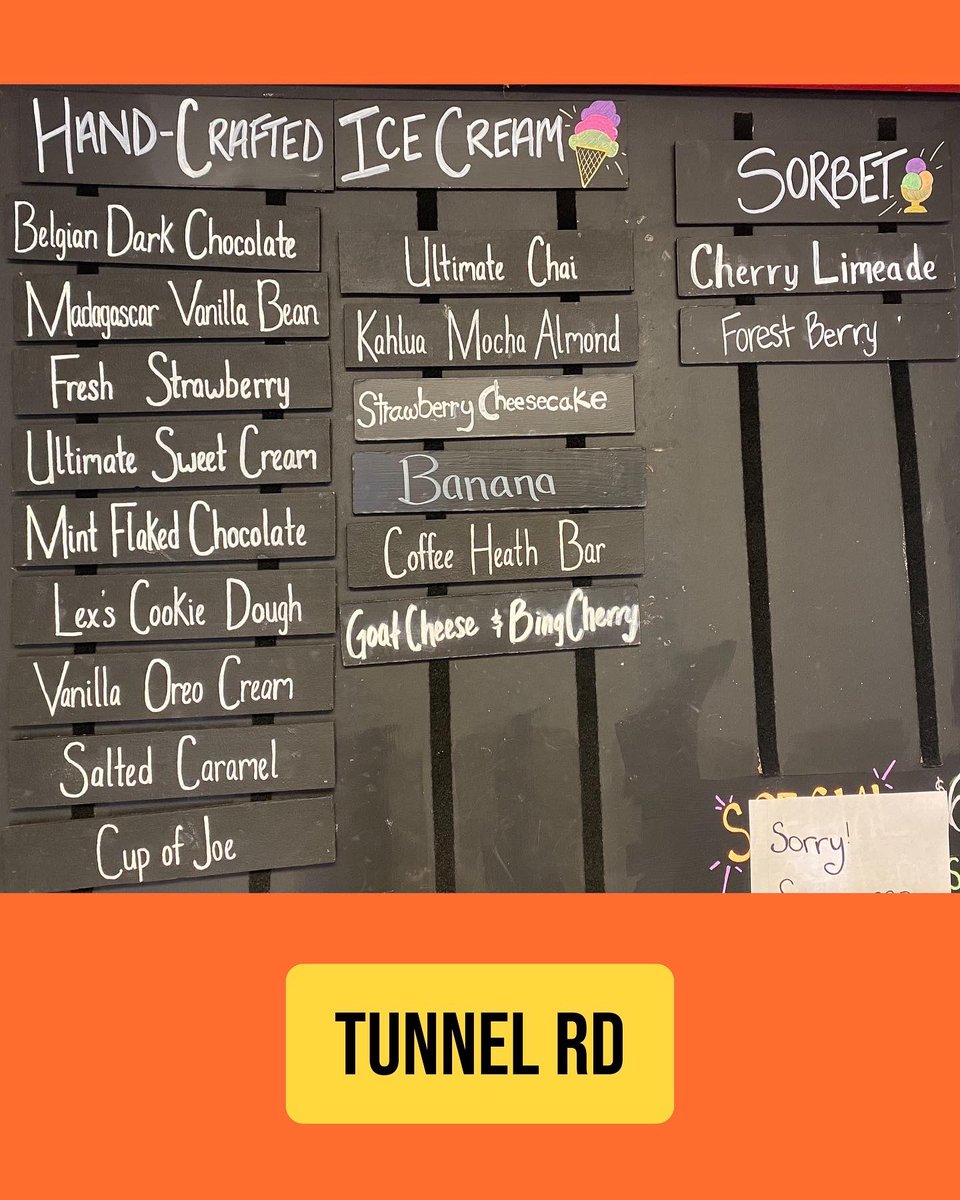 HAND-CRAFTED ICE CREAM
Belgian Dark Chocolate
Madagascar Vanilla Bean
Fresh Strawberry
Ultimate Sweet Cream
Mint Flaked Chocolate
Lex's Cookie Dough
Vanilla Oreo Cream
Salted Caramel
Cup of Joe
Ultimate Chai
Kahlua Mocha Almond
Strawberry Cheesecake
Banana
Coffee Heath Bar
Goat Cheese & Bing Cherry
SORBET
Cherry Limeade
Forest Berry
Sorry!
TUNNEL RD